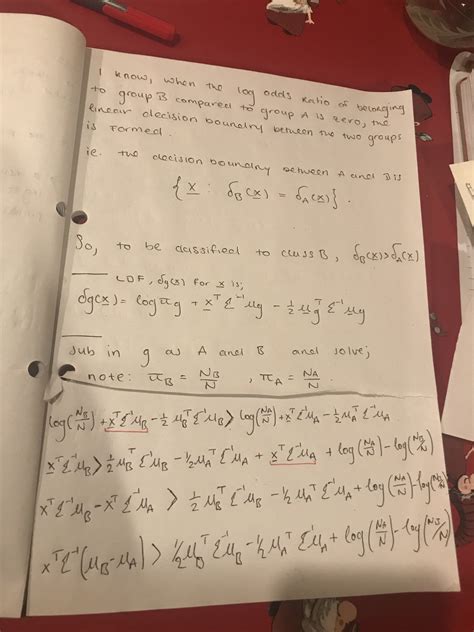 I know, when the log odds ratio of belonging
to group B compared to group A is zero, the
linear decision boundry between the two groups
is formed.
ie. the decision boundry between A and B is
{x : δB(x) = δA(x)}.
So, to be classified to class B, δB(x)>δA(x)
LDF, δg(x) for x is;
δg(x) = log πg + xᵀ Σ⁻¹ μg - ½ μgᵀ Σ⁻¹ μg
sub in g as A and B and solve;
note: πB = NB/N , πA = NA/N .
log(NB/N) + xᵀΣ⁻¹μB - ½ μBᵀ Σ⁻¹μB > log(NA/N) + xᵀΣ⁻¹μA - ½ μAᵀΣ⁻¹μA
xᵀΣ⁻¹μB > ½ μBᵀ Σ⁻¹μB - ½ μAᵀ Σ⁻¹μA + xᵀΣ⁻¹μA + log(NA/N) - log(NB/N)
xᵀΣ⁻¹μB - xᵀΣ⁻¹μA > ½ μBᵀ Σ⁻¹μB - ½ μAᵀ Σ⁻¹μA + log(NA/N) - log(NB/N)
xᵀΣ⁻¹(μB - μA) > ½ μBᵀ Σ⁻¹μB - ½ μAᵀ Σ⁻¹μA + log(NA/N) - log(NB/N)